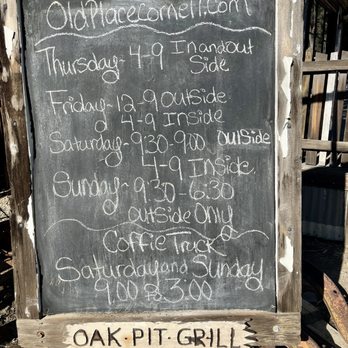 OldPlaceCornell.com
Thursday- 4-9 In and out
Side
Friday- 12-9 Outside
4-9 Inside
Saturday- 9:30-9:00 OutSide
4-9 InSide.
Sunday- 9:30-6:30
outside Only
Coffie Truck
Saturday and Sunday
9:00 to 3:00
OAK·PIT·GRILL